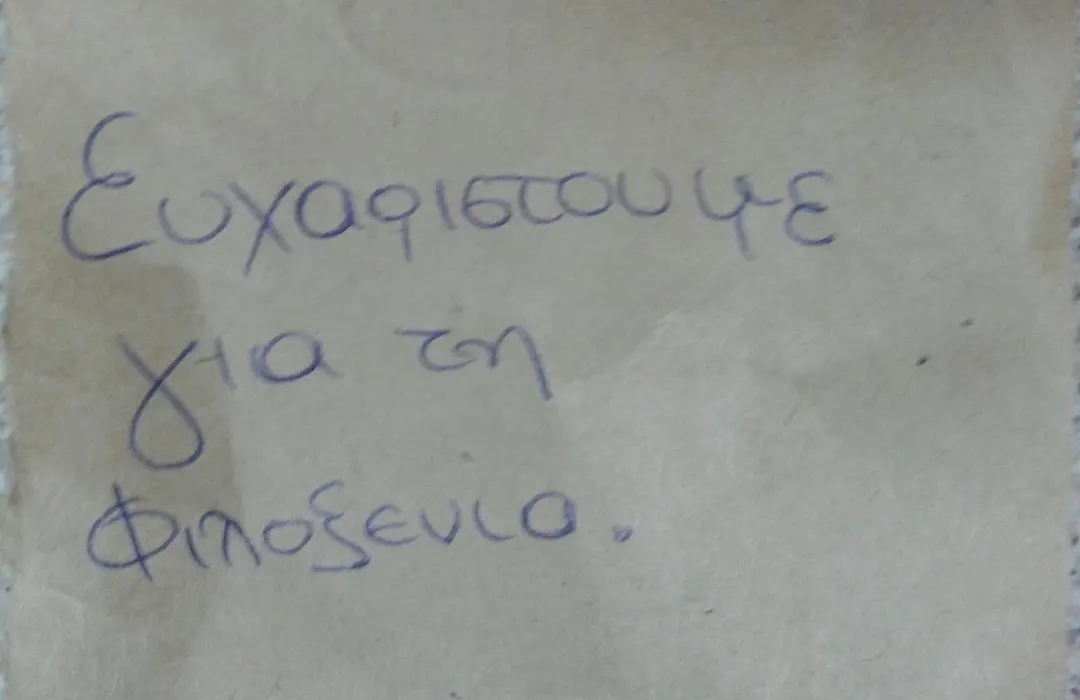 Ευχαριστουμε
για τη
Φιλοξενια.